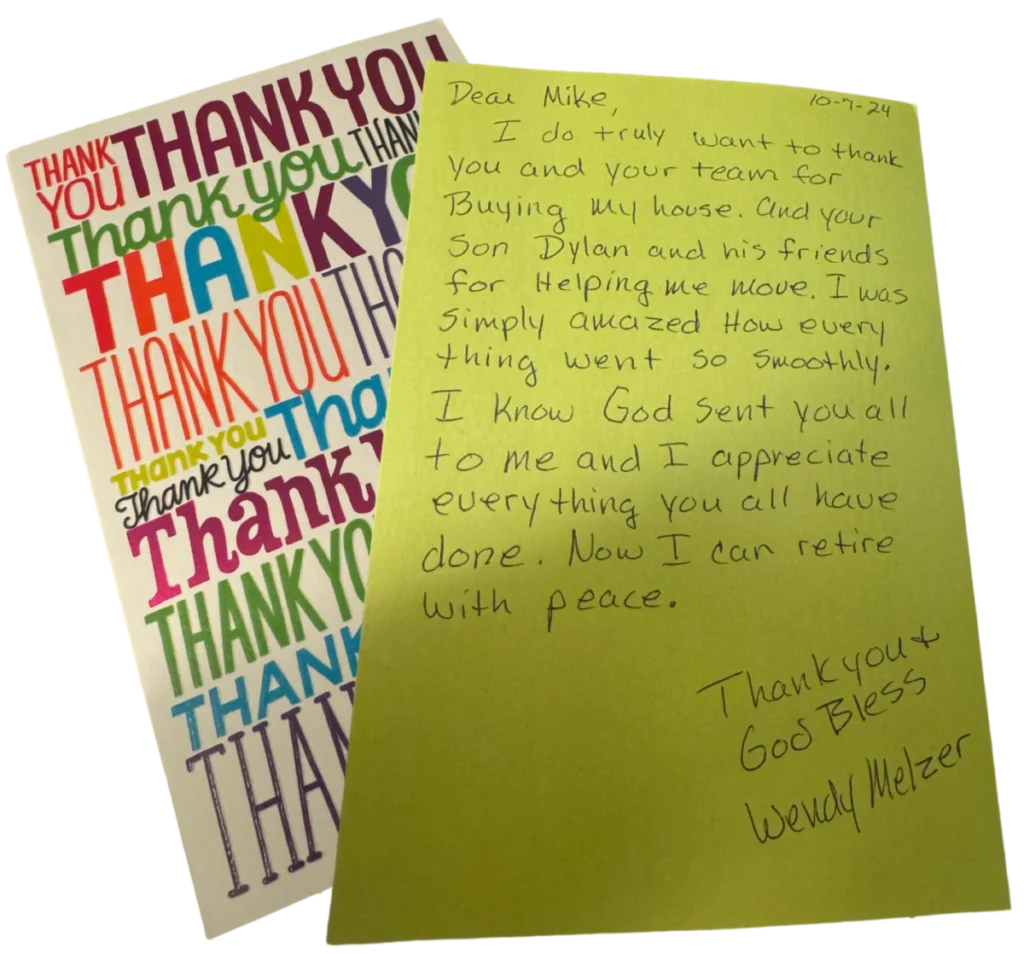 THANK YOU THANK YOU
Thank you THANK
THANK YO
THANK YOU THO
THANK YOU Tha
Thank you
Thank
THANK YO
THANK
THAN
Dear Mike, 10-7-24
I do truly want to thank
you and your team for
Buying my house. And your
Son Dylan and his friends
for Helping me move. I was
simply amazed How every
thing went so smoothly.
I know God sent you all
to me and I appreciate
everything you all have
done. Now I can retire
with peace.
Thank you +
God Bless
Wendy Melzer